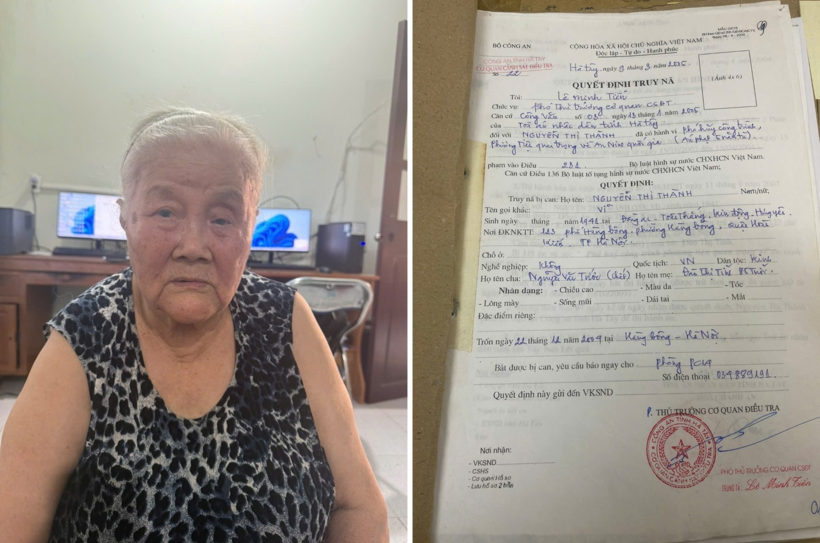 BỘ CÔNG AN
CỘNG HÒA XÃ HỘI CHỦ NGHĨA VIỆT NAM
Độc lập - Tự do - Hạnh phúc
CÔNG AN TỈNH HÀ TÂY
CƠ QUAN CẢNH SÁT ĐIỀU TRA
Số 22
Hà Tây, ngày 9 tháng 3 năm 2005
QUYẾT ĐỊNH TRUY NÃ
(Ảnh 4x6)
Tôi: Lê Minh Tiến
Chức vụ: phó thủ trưởng cơ quan CSĐT
Căn cứ Công văn số ngày tháng năm 2005
của Toà án nhân dân tỉnh Hà Tây
đối với NGUYỄN THỊ THÀNH đã có hành vi phá hủy công trình,
phương tiện quan trọng về An Ninh quốc gia (Án phạt 5 năm tù)
phạm vào Điều 231 Bộ luật hình sự nước CHXHCN Việt Nam.
Căn cứ Điều 136 Bộ luật tố tụng hình sự nước CHXHCN Việt Nam
QUYẾT ĐỊNH:
Truy nã bị can: Họ tên: NGUYỄN THỊ THÀNH Nam/nữ,
Tên gọi khác: Vĩ
Sinh ngày, tháng năm 1942 tại Toàn Thắng, Kim Động, Hưng Yên
Nơi ĐKNKTT: phố Hàng Bông, phường Hàng Bông, Quận Hoàn
Kiếm - TP Hà Nội.
Chỗ ở:
Nghề nghiệp: Không Quốc tịch: VN Dân tộc: Kinh
Họ tên cha: Nguyễn (chết) Họ tên mẹ: Thị
Nhân dạng: - Chiều cao - Màu da - Tóc
- Lông mày - Sống mũi - Dái tai - Mắt
Đặc điểm riêng:
Trốn ngày 22 tháng 12 năm 2004 tại Hàng Bông - Hà Nội.
Bắt được bị can, yêu cầu báo ngay cho phòng PC14
Số điện thoại
Quyết định này gửi đến VKSND
P. THỦ TRƯỞNG CƠ QUAN ĐIỀU TRA
Nơi nhận:
- VKSND
- CSHS
- Cơ quan hồ sơ
- Lưu hồ sơ 2 bản
PHÓ THỦ TRƯỞNG CƠ QUAN CSĐT
Lê Minh Tiến